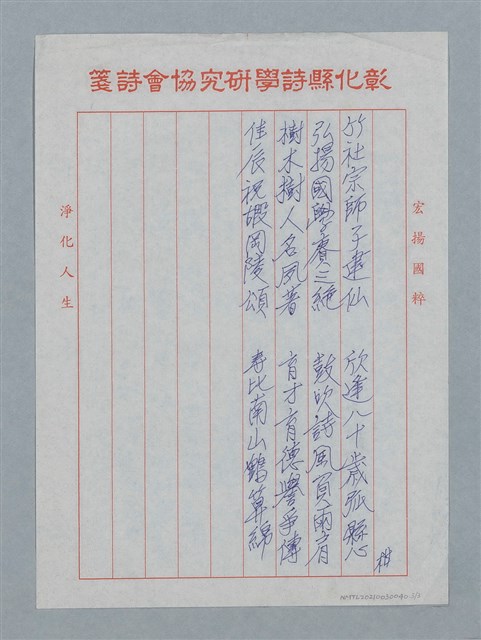 彰化縣詩學研究協會詩箋
宏揚國粹
竹社宗師子建仙 欣逢八十歲弧懸
弘揚國學賡三絕 鼓吹詩風貫兩肩
樹木樹人名夙著 育才育德譽爭傳
佳辰祝嘏岡陵頌 壽比南山鶴算綿
淨化人生